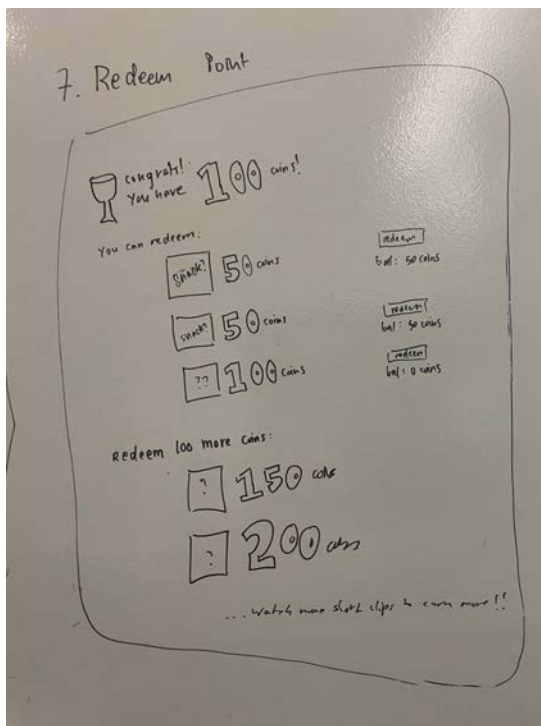 7. Redeem Point
congrats!
You have 100 coins!
You can redeem:
snack? 50 coins redeem
bal: 50 coins
snack? 50 coins redeem
bal: 50 coins
?? 100 coins redeem
bal: 0 coins
Redeem 100 more coins:
? 150 coins
? 200 coins
... watch more short clips to earn more!!